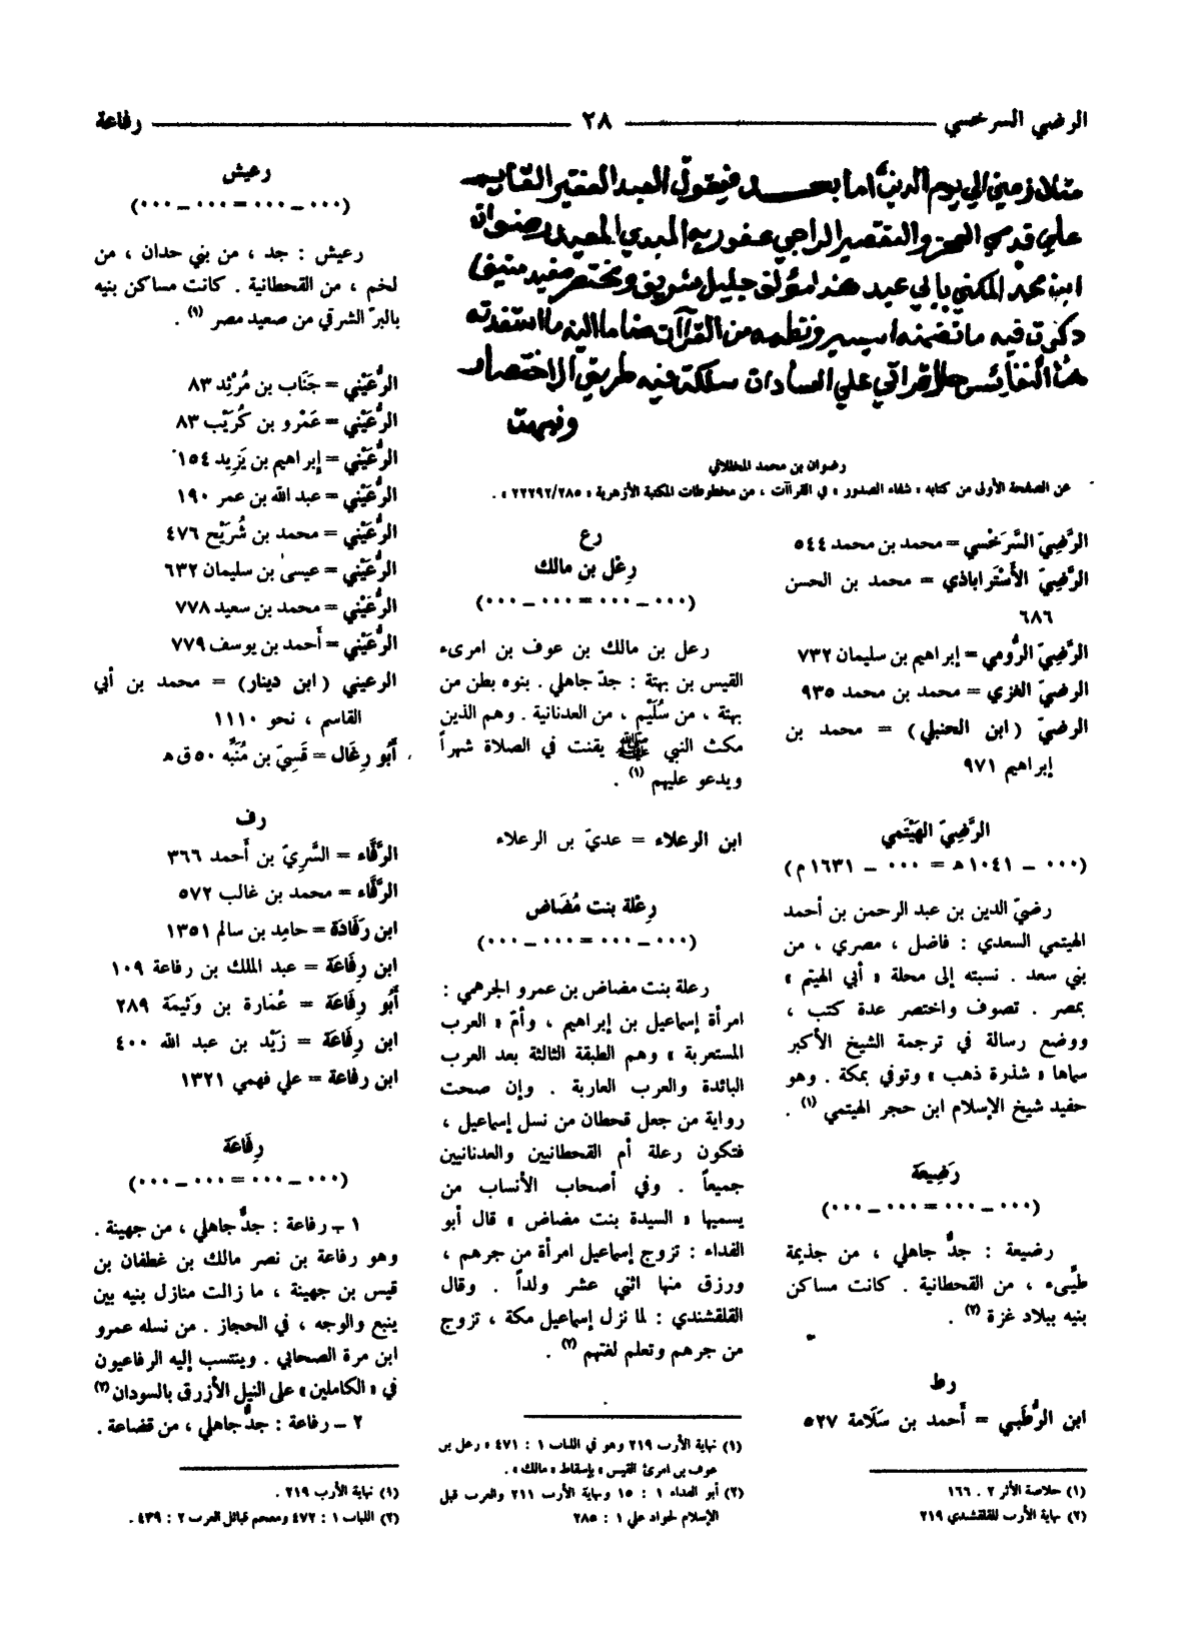 الرضي السرخسي ٢٨ رفاعة
متلازمين الي يوم الدين اما بعد فيقول العبد الفقير القايم
علي قدمي العجز والتقصير الراجي عفو ربه المبدي المعيد رضوان
ابن محمد المكني بابي عيد هذا مؤلف جليل شريف ومختصر مفيد منيف
ذكرت فيه ما تضمنه من القراآت
علي السادات سلكت فيه طريق الاختصار
رضوان بن محمد المخللاتي
عن الصفحة الأولى من كتابه « شفاء الصدور » في القراآت ، من مخطوطات المكتبة الأزهرية « ٢٢٢٩٢/٢٨٥ » .
الرَّضِيّ السَّرَخْسي = محمد بن محمد ٥٤٤
الرَّضِيّ الأَسْتَراباذي = محمد بن الحسن
٦٨٦
الرَّضِيّ الرُّومي = إبراهيم بن سليمان ٧٣٢
الرضيّ الغزي = محمد بن محمد ٩٣٥
الرضيّ ( ابن الحنبلي ) = محمد بن
إبراهيم ٩٧١
الرَّضِيّ الهَيْتَمي
( ٠٠٠ – ١٠٤١ ه = ٠٠٠ – ١٦٣١ م )
رضيّ الدين بن عبد الرحمن بن أحمد
الهيتمي السعدي : فاضل ، مصري ، من
بني سعد . نسبته إلى محلة « أبي الهيتم »
بمصر . تصوف واختصر عدة كتب ،
ووضع رسالة في ترجمة الشيخ الأكبر
سماها « شذرة ذهب » وتوفي بمكة . وهو
حفيد شيخ الإسلام ابن حجر الهيتمي (١) .
رَضِيعَة
( ٠٠٠ – ٠٠٠ = ٠٠٠ – ٠٠٠ )
رضيعة : جدٌّ جاهلي ، من جذيمة
طيِّىء ، من القحطانية . كانت مساكن
بنيه ببلاد غزة (٢) .
رط
ابن الرُّطَبي = أحمد بن سَلَامة ٥٢٧
(١) خلاصة الأثر ٢ . ١٦٦
(٢) نهاية الأرب للقلقشندي ٢١٩
رع
رِعْل بن مالك
( ٠٠٠ – ٠٠٠ = ٠٠٠ – ٠٠٠ )
رعل بن مالك بن عوف بن امرىء
القيس بن بهثة : جدّ جاهلي . بنوه بطن من
بهثة ، من سُلَيْم ، من العدنانية . وهم الذين
مكث النبي ﷺ يقنت في الصلاة شهراً
ويدعو عليهم (١) .
ابن الرعلاء = عديّ بن الرعلاء
رِعْلة بنت مُضَاض
( ٠٠٠ – ٠٠٠ = ٠٠٠ – ٠٠٠ )
رعلة بنت مضاض بن عمرو الجرهمي :
امرأة إسماعيل بن إبراهيم ، وأمّ « العرب
المستعربة » وهم الطبقة الثالثة بعد العرب
البائدة والعرب العاربة . وإن صحت
رواية من جعل قحطان من نسل إسماعيل ،
فتكون رعلة أم القحطانيين والعدنانيين
جميعاً . وفي أصحاب الأنساب من
يسميها « السيدة بنت مضاض » قال أبو
الفداء : تزوج إسماعيل امرأة من جرهم ،
ورزق منها اثني عشر ولداً . وقال
القلقشندي : لما نزل إسماعيل مكة ، تزوج
من جرهم وتعلم لغتهم (٢) .
(١) نهاية الأرب ٢١٩ وهو في اللباب ١ : ٤٧١ « رعل بن
عوف بن امرئ القيس » بإسقاط « مالك » .
(٢) أبو الفداء ١ : ١٥ ونهاية الأرب ٢١١ والعرب قبل
الإسلام لجواد علي ١ : ٢٨٥
رعيش
( ٠٠٠ – ٠٠٠ = ٠٠٠ – ٠٠٠ )
رعيش : جد ، من بني حدان ، من
لخم ، من القحطانية . كانت مساكن بنيه
بالبرّ الشرقي من صعيد مصر (١) .
الرُّعَيْني = جَنَاب بن مُرْثِد ٨٣
الرُّعَيْني = عَمْرو بن كُرَيْب ٨٣
الرُّعَيْني = إبراهيم بن يَزِيد ١٥٤
الرُّعَيْني = عبد الله بن عمر ١٩٠
الرُّعَيْني = محمد بن شُرَيْح ٤٧٦
الرُّعَيْني = عيسىٰ بن سليمان ٦٣٢
الرُّعَيْني = محمد بن سعيد ٧٧٨
الرُّعَيْني = أحمد بن يوسف ٧٧٩
الرعيني ( ابن دينار ) = محمد بن أبي
القاسم ، نحو ١١١٠
أَبُو رِغَال = قَسِيّ بن مُنَبِّه ٥٠ ق ه
رف
الرَّفَّاء = السَّرِيّ بن أحمد ٣٦٦
الرَّفَّاء = محمد بن غالب ٥٧٢
ابن رَفَادَة = حامِد بن سالم ١٣٥١
ابن رِفَاعَة = عبد الملك بن رفاعة ١٠٩
أَبُو رِفَاعَة = عُمَارة بن وَثيمَة ٢٨٩
ابن رِفَاعَة = زَيْد بن عبد الله ٤٠٠
ابن رفاعة = علي فهمي ١٣٢١
رِفَاعَة
( ٠٠٠ – ٠٠٠ = ٠٠٠ – ٠٠٠ )
١ – رفاعة : جدٌّ جاهلي ، من جهينة .
وهو رفاعة بن نصر مالك بن غطفان بن
قيس بن جهينة ، ما زالت منازل بنيه بين
ينبع والوجه ، في الحجاز . من نسله عمرو
ابن مرة الصحابي . وينتسب إليه الرفاعيون
في « الكاملين » على النيل الأزرق بالسودان (٢)
٢ – رفاعة : جدٌّ جاهلي ، من قضاعة .
(١) نهاية الأرب ٢١٩ .
(٢) اللباب ١ : ٤٧٢ ومعجم قبائل العرب ٢ : ٤٣٩ .